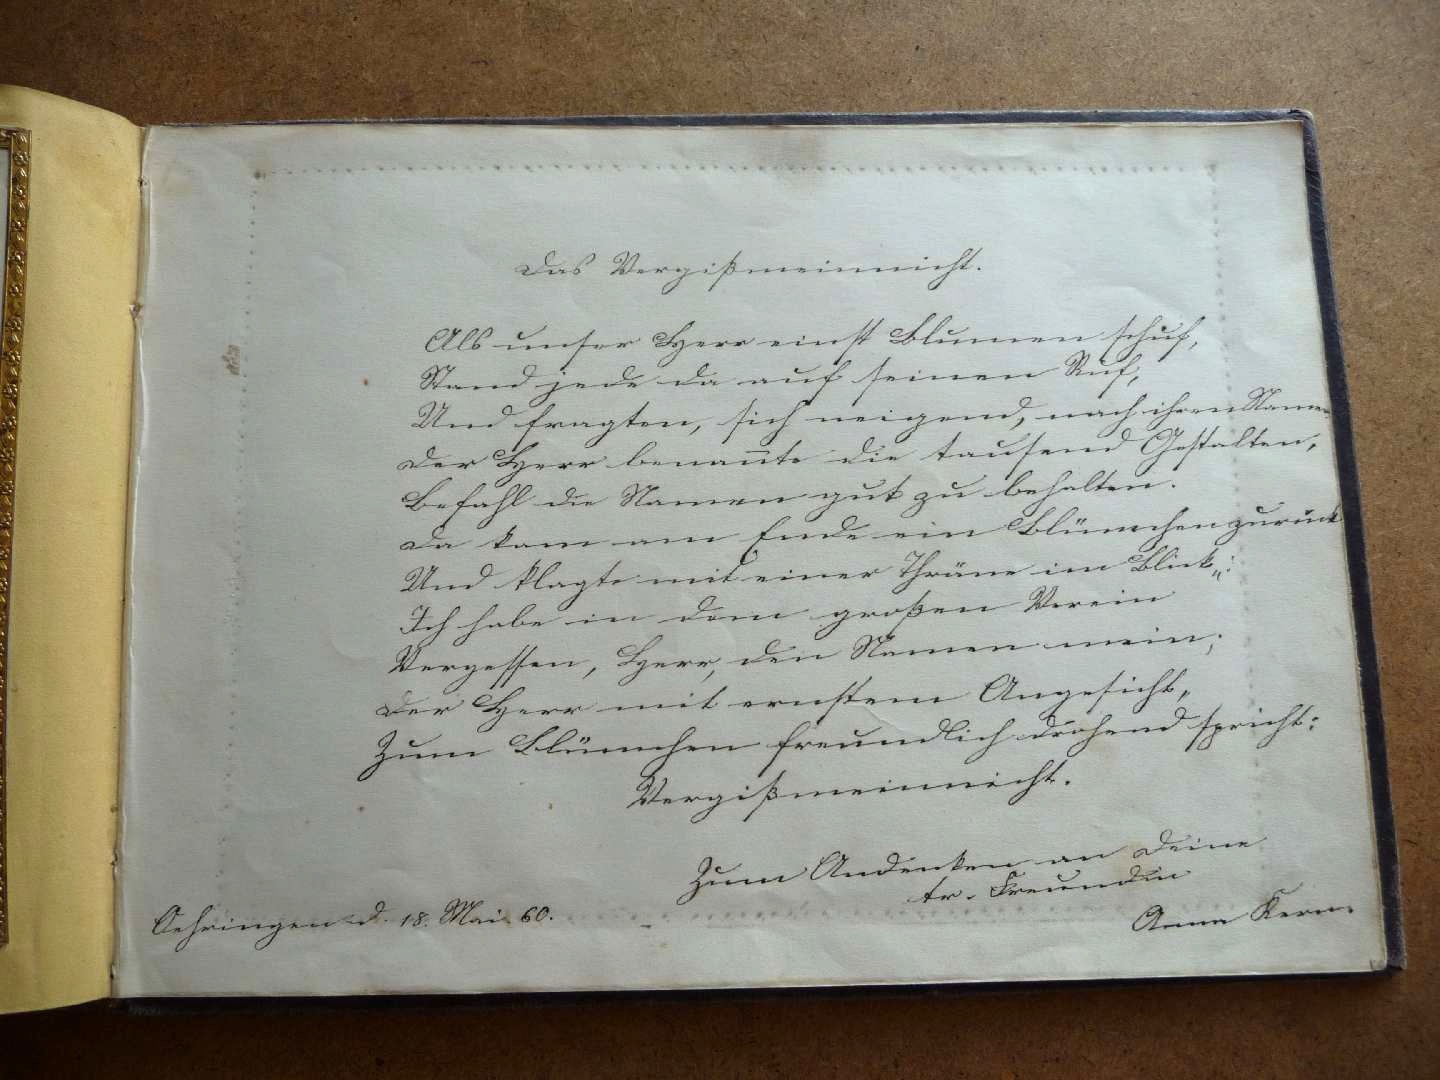 Das Vergißmeinnicht.
Als unser Herr einst Blumen schuf,
Stand jede da auf seinen Ruf,
Und fragten, sich neigend, nach ihren Namen
Der Herr benannte die tausend Gestalten,
Befahl die Namen gut zu behalten.
Da kam am Ende ein Blümchen zurück
Und klagte mit einer Thräne im Blick„:
Ich habe in dem großen Verein
Vergessen, Herr, den Namen mein;
Der Herr mit ernstem Angesicht,
Zum Blümchen freundlich drohend spricht:
Vergißmeinnicht.
Zum Andenken an Deine
tr. Freundin
Anna Kern.
Oehringen d. 18. Mai 60.